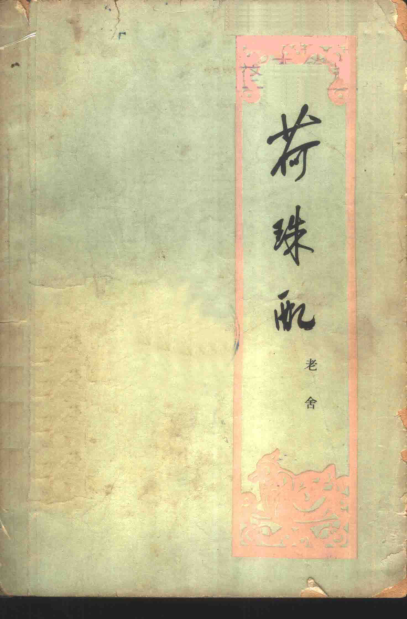 荷珠配
老舍